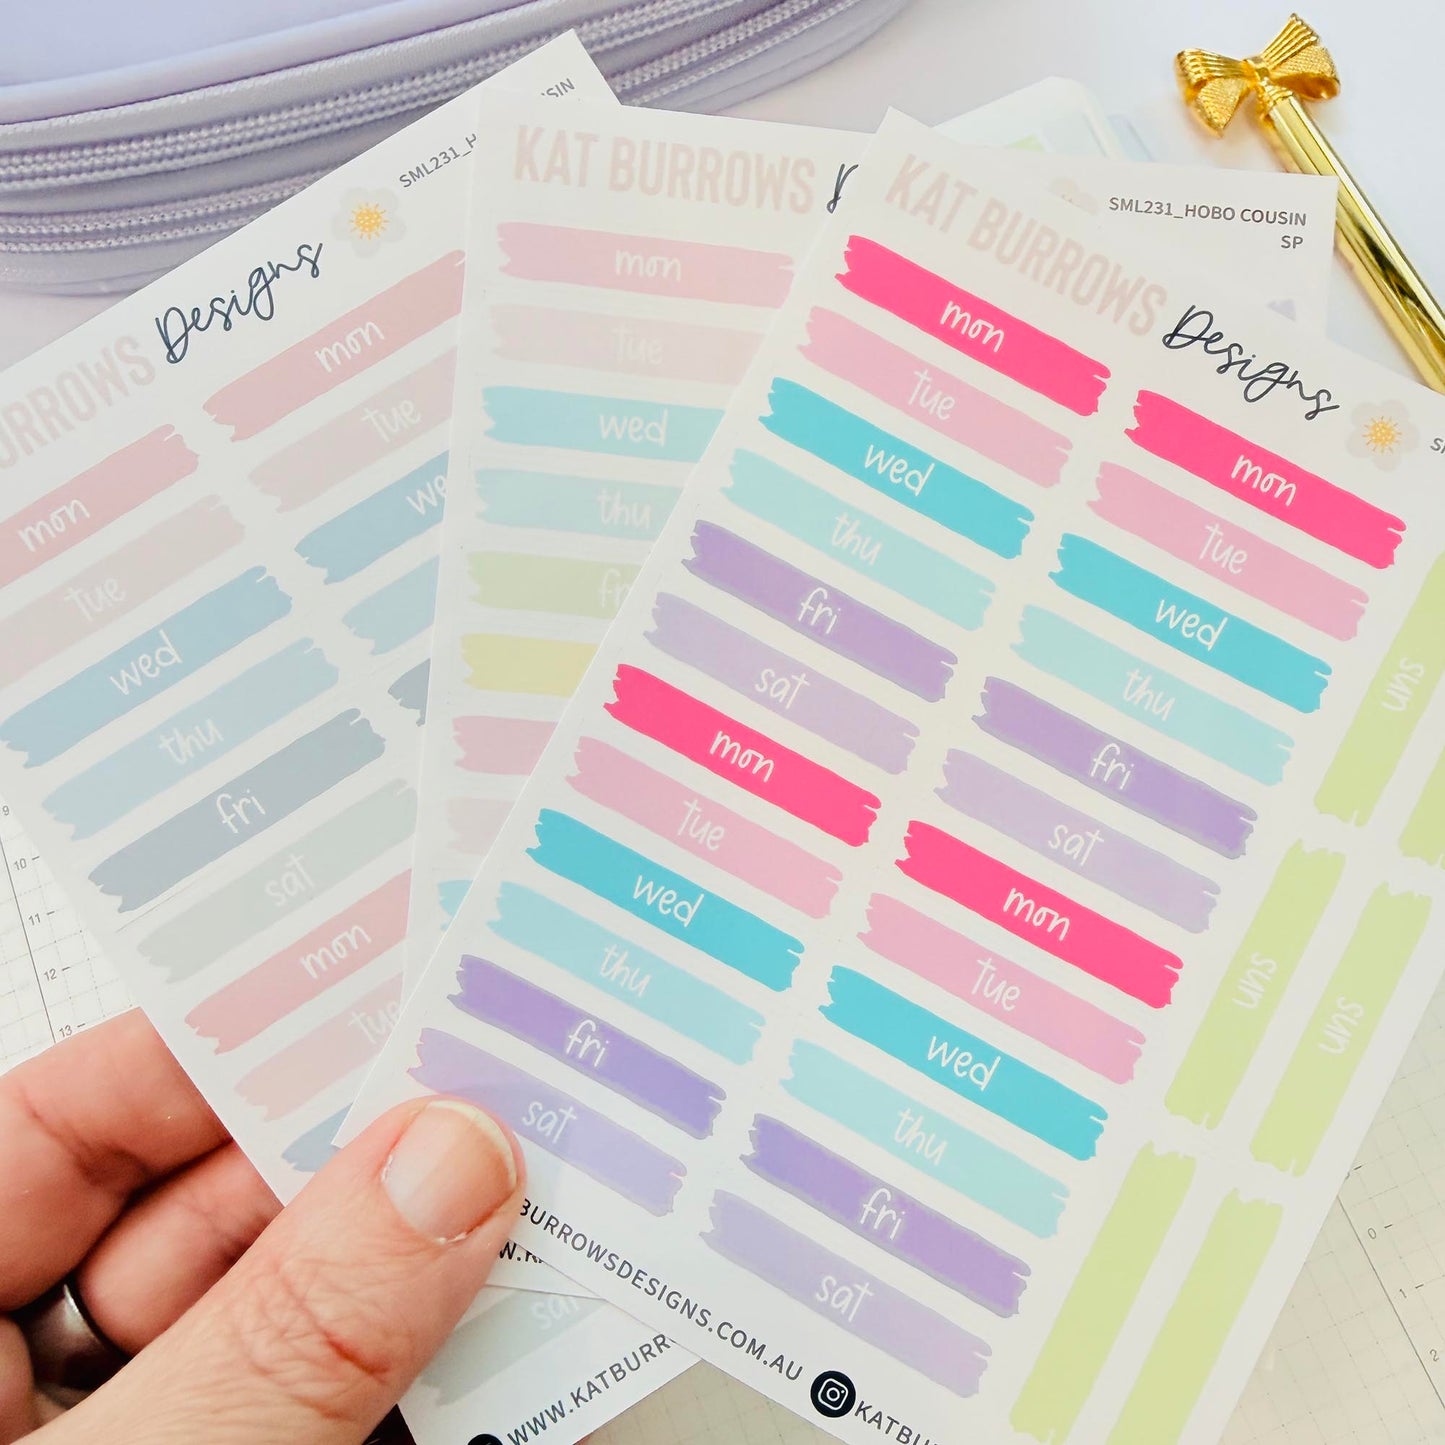 SML231_H
SIN
BURROWS Designs
mon
mon
tue
tue
wed
we
thu
fri
sat
mon
tue
sat
KAT BURROWS
mon
tue
wed
thu
fr
SML231_HOBO COUSIN
SP
KAT BURROWS Designs
mon
tue
wed
thu
fri
sat
mon
tue
wed
thu
fri
sat
mon
tue
wed
thu
fri
sat
mon
tue
wed
thu
fri
sat
sun
sun
sun
BURROWSDESIGNS.COM.AU
KATBU
WWW.KATBURR
9
10
11
12
13
0
1
2